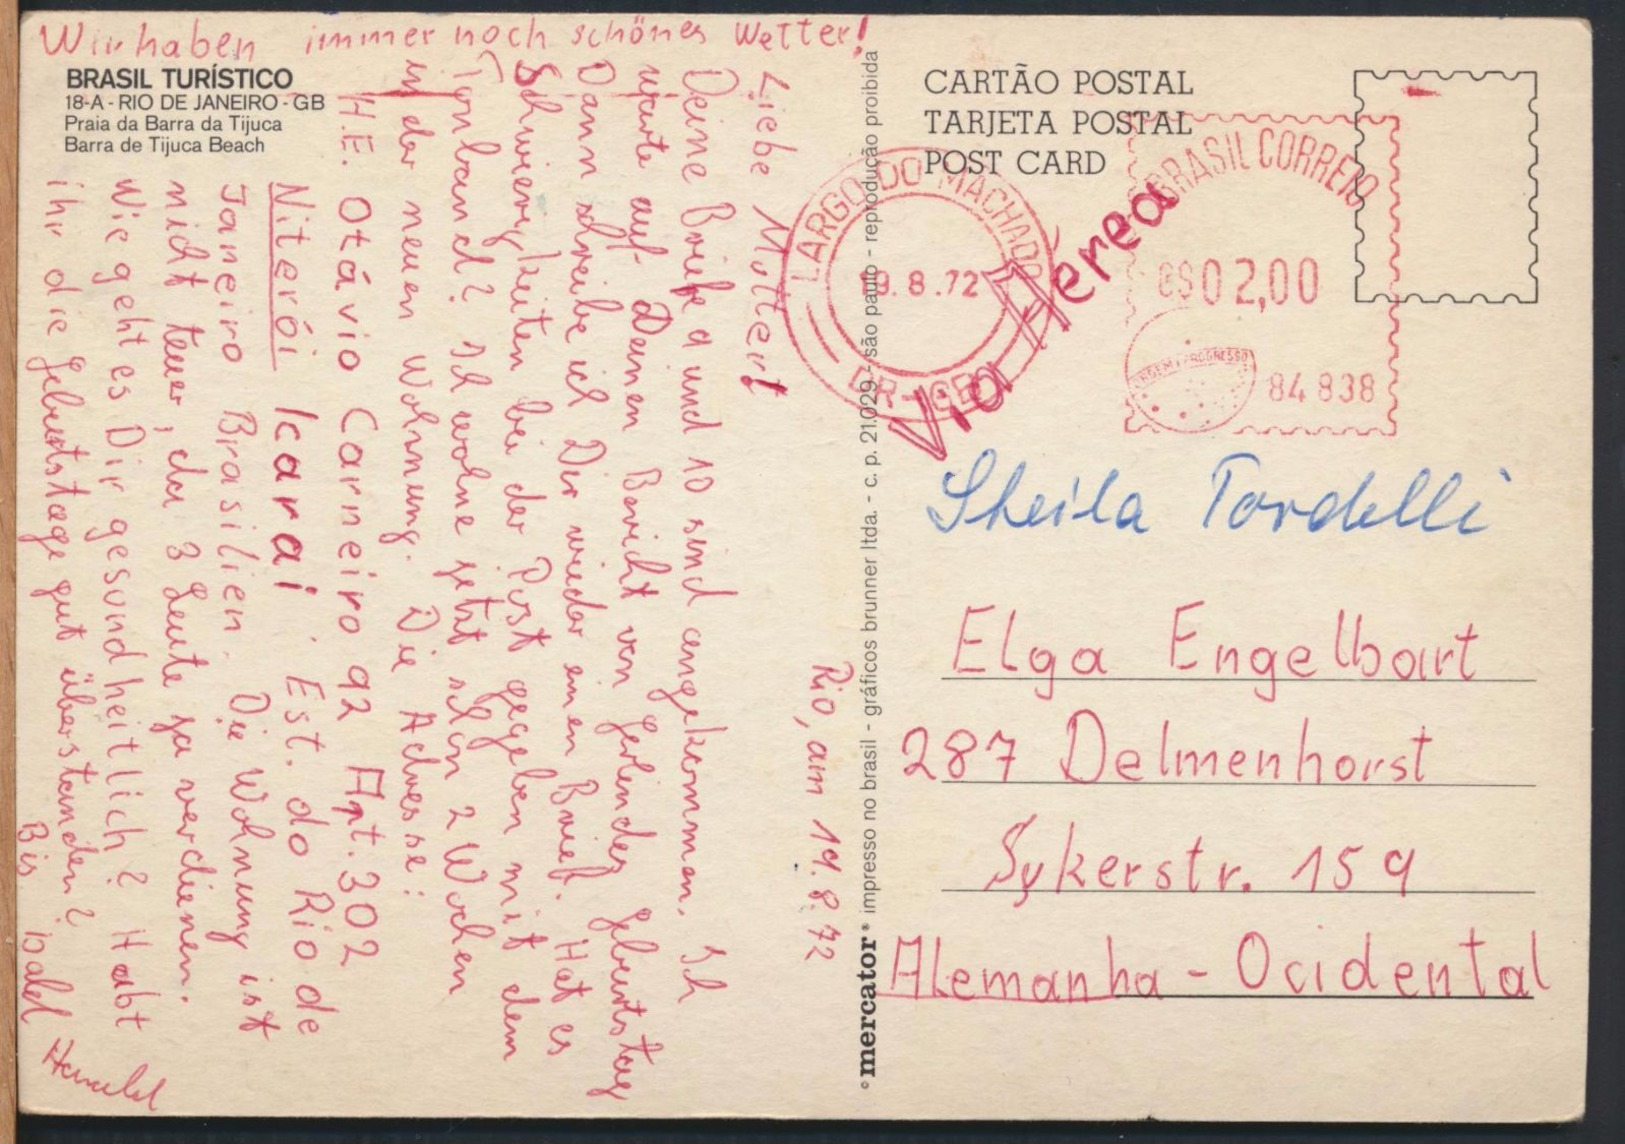 Wir haben immer noch schönes Wetter!
BRASIL TURÍSTICO
18-A - RIO DE JANEIRO - GB
Praia da Barra da Tijuca
Barra de Tijuca Beach
Rio, am 19.8.72
Liebe Mutter!
Deine Briefe 9 und 10 sind angekommen. Ich
warte auf Deinen Bericht von Gerlindes Geburtstag
Dann schreibe ich Dir wieder einen Brief. Hat es
Schwierigkeiten bei der Post gegeben mit dem
Tonband? Ich wohne jetzt schon 2 Wochen
in der neuen Wohnung. Die Adresse:
H.E. Otávio Carneiro 92 Apt. 302
Niterói Icarai. Est. do Rio de
Janeiro Brasilien. Die Wohnung ist
nicht teuer, da 3 Leute ja verdienen.
Wie geht es Dir gesundheitlich? Habt
ihr die Geburtstage gut überstanden?
Bis bald
Harald
mercator
impresso no brasil - gráficos brunner ltda. - c. p. 21.029 - são paulo - reprodução proibida
CARTÃO POSTAL
TARJETA POSTAL
POST CARD
LARGO DO MACHADO
19.8.72
DR-GB
BRASIL CORREIO
02,00
ORDEM E PROGRESSO
84838
Via Aerea
Sheila Tordelli
Elga Engelbart
287 Delmenhorst
Sykerstr. 159
Alemanha - Ocidental